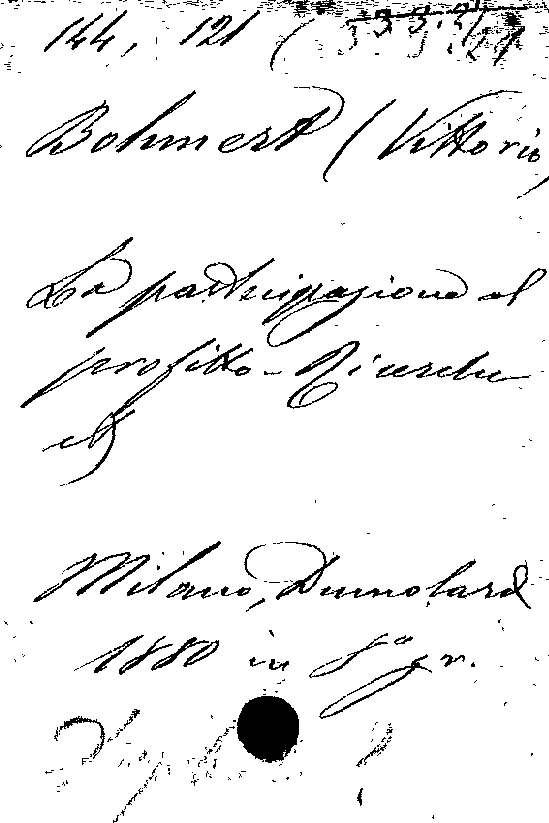 144, 121 (
Bohmert (Vittorio)
La partecipazione al
profitto - Ricerche
etc
Milano, Dumolard
1880 in 8° gr.